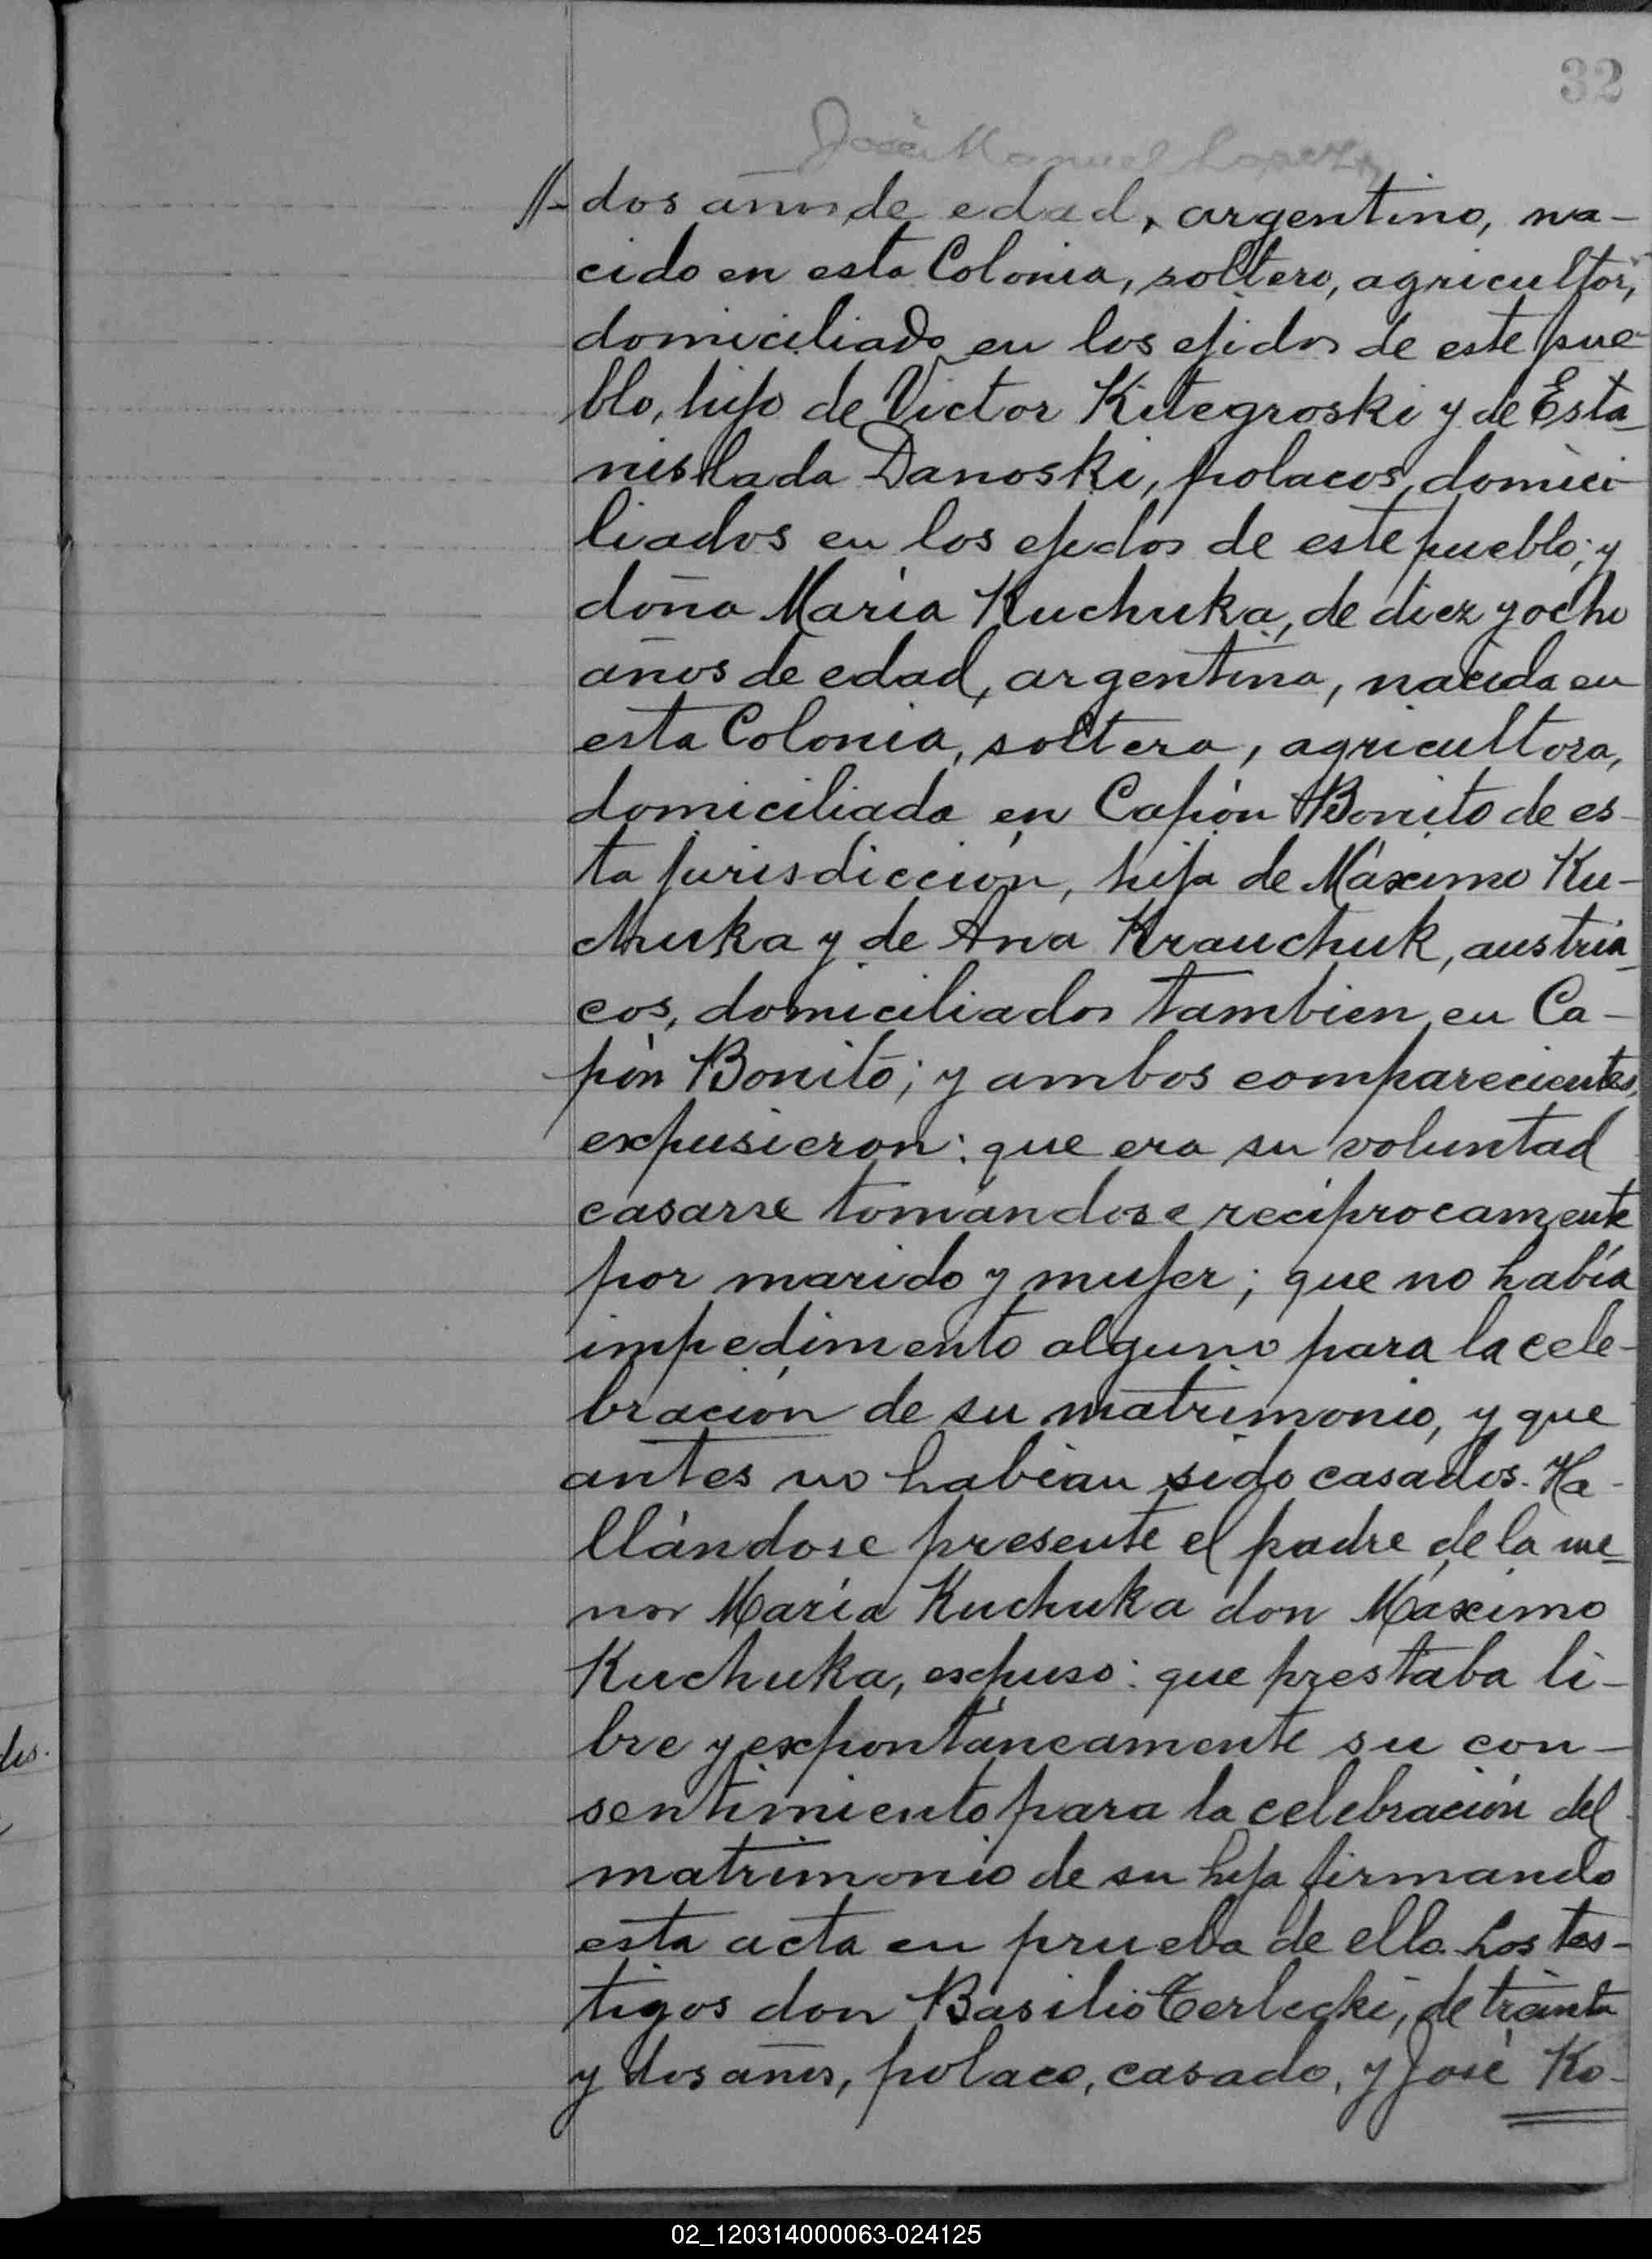 32
José Manuel Lopez
//- dos años de edad, argentino, na-
cido en esta Colonia, soltero, agricultor,
domiciliado en los ejidos de este pue-
blo, hijo de Victor Kitegroski y de Esta-
nislada Danoski, polacos, domici-
liados en los ejidos de este pueblo; y
doña María Kuchuka, de diez y ocho
años de edad, argentina, nacida en
esta Colonia, soltera, agricultora,
domiciliada en Capón Bonito de es-
ta jurisdicción, hija de Máximo Ku-
chuka y de Ana Krauchuk, austria-
cos, domiciliados tambien en Ca-
pón Bonito; y ambos comparecientes,
expusieron: que era su voluntad
casarse tomándose reciprocamente
por marido y mujer; que no había
impedimento alguno para la cele-
bración de su matrimonio, y que
antes no habian sido casados. Ha-
llándose presente el padre de la me-
nor María Kuchuka don Máximo
Kuchuka, expuso: que prestaba li-
bre y expontáneamente su con-
sentimiento para la celebración del
matrimonio de su hija firmando
esta acta en prueba de ello. Los tes-
tigos don Basilio Terlecki, de treinta
y dos años, polaco, casado, y José Ko-
02_120314000063-024125